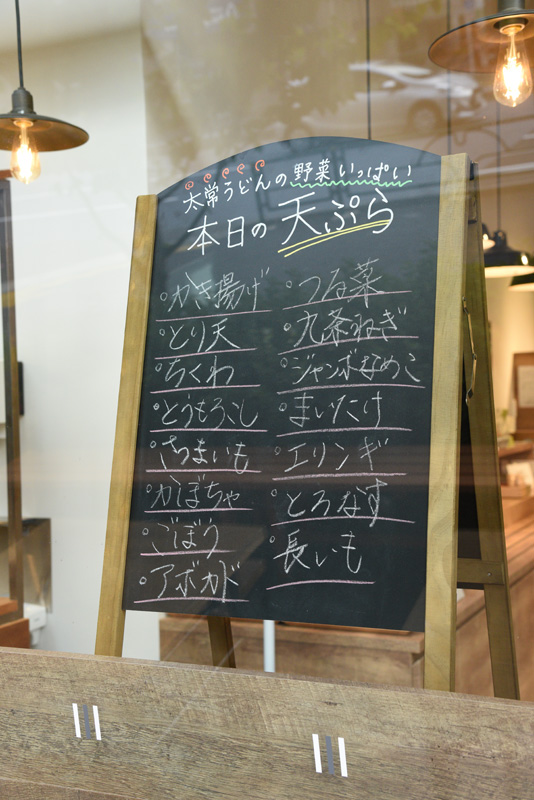 太常うどんの野菜いっぱい
本日の天ぷら
かき揚げ
とり天
ちくわ
とうもろこし
さつまいも
かぼちゃ
ごぼう
アボカド
つる菜
九条ねぎ
ジャンボなめこ
まいたけ
エリンギ
とろなす
長いも